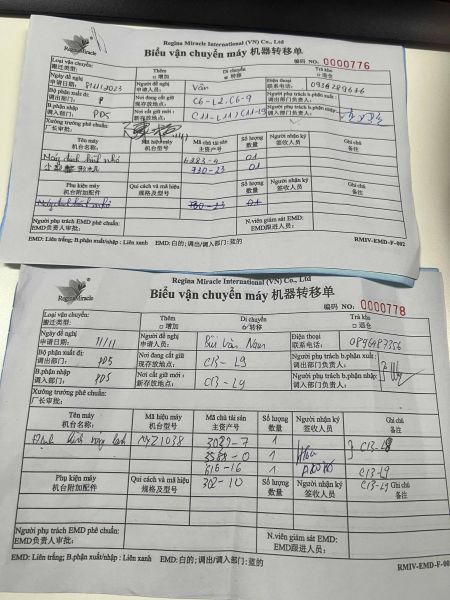 Regina Miracle International (VN) Co., Ltd
Regina Miracle
Biểu vận chuyển máy 机器转移单
编码 NO. 0000776
Loại vận chuyển: Thêm Di chuyển Trả kho
搬迁类型: □ 增加 转移 □ 退仓
Ngày đề nghị Người đề nghị Vân Điện thoại
申请日期: 8/11/2023 申请人员: 联系电话: 0936289686
Bộ phận xuất đi: P Nơi đang cất giữ C6-L2, C6-9 Người phụ trách b.phận xuất:
调出部门: 现存放地点: 调出部门负责人:
B.phận nhập PDS Nơi cất giữ mới: C11-L11 / C11-19 Người phụ trách b.phận nhập
调入部门: 新存放地点: 调入部门负责人:
Xưởng trưởng phê chuẩn:
厂长审批:
Tên máy Mã hiệu máy Mã chủ tài sản Số lượng Người nhận ký Ghi chú
机台名称: 机台型号 主资产号 数量 签收人员 备注
01
730-23 01
Phụ kiện máy Qui cách và mã hiệu Mã chủ tài sản Số lượng Người nhận ký Ghi chú
机台附加配件 规格及型号 主资产号 数量 签收人员 备注
730-23 01
Người phụ trách EMD phê chuẩn: N.viên giám sát EMD:
EMD负责人审批: EMD跟进人员:
EMD: Liên trắng; B.phận xuất/nhập : Liên xanh EMD: 白的; 调出/调入部门: 蓝的 RMIV-EMD-F-002
Regina Miracle International (VN) Co., Ltd
Regina Miracle
Biểu vận chuyển máy 机器转移单
编码 NO. 0000778
Loại vận chuyển: Thêm Di chuyển Trả kho
搬迁类型: □ 增加 转移 □ 退仓
Ngày đề nghị 11/11 Người đề nghị Bùi Văn Nam Điện thoại
申请日期: 申请人员: 联系电话:
Bộ phận xuất đi: PDS Nơi đang cất giữ C13-L9 Người phụ trách b.phận xuất:
调出部门: 现存放地点: 调出部门负责人:
B.phận nhập PDS Nơi cất giữ mới: C13-L9 Người phụ trách b.phận nhập
调入部门: 新存放地点: 调入部门负责人:
Xưởng trưởng phê chuẩn:
厂长审批:
Tên máy Mã hiệu máy Mã chủ tài sản Số lượng Người nhận ký Ghi chú
机台名称: 机台型号 主资产号 数量 签收人员 备注
3029-7 1
1 C13-L8
616-16 1 C13-L9
Phụ kiện máy Qui cách và mã hiệu 302-10 Số lượng Người nhận ký C13-L9 Ghi chú
机台附加配件 规格及型号 数量 签收人员 备注
Người phụ trách EMD phê chuẩn: N.viên giám sát EMD:
EMD负责人审批: EMD跟进人员:
EMD: Liên trắng; B.phận xuất/nhập : Liên xanh EMD: 白的; 调出/调入部门: 蓝的 RMIV-EMD-F-00